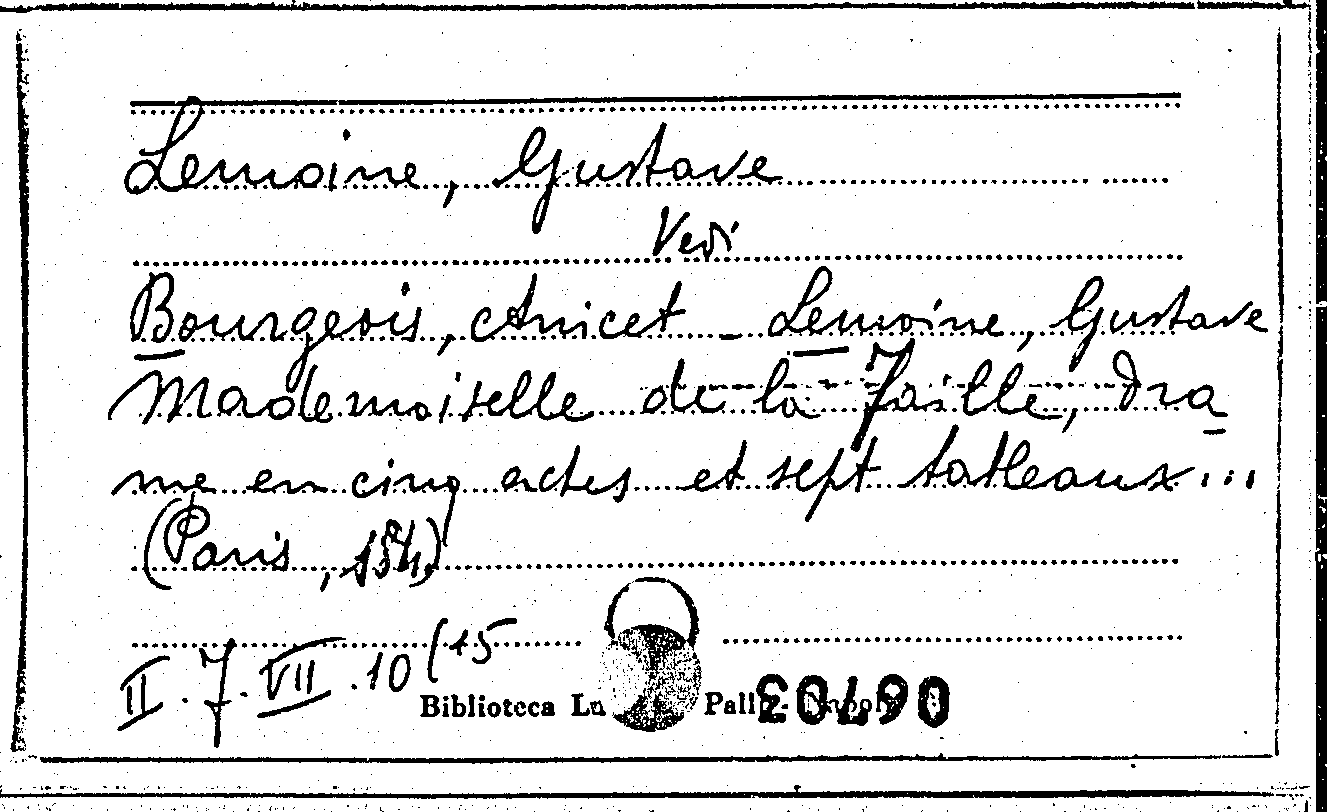 Lemoine, Gustave
Vedi
Bourgeois, Anicet - Lemoine, Gustave
Mademoiselle de la Faille, dra
me en cinq actes et sept tableaux...
(Paris, 184.)
II.7.VII.10(15
Biblioteca Lu Palli - Napoli
06703